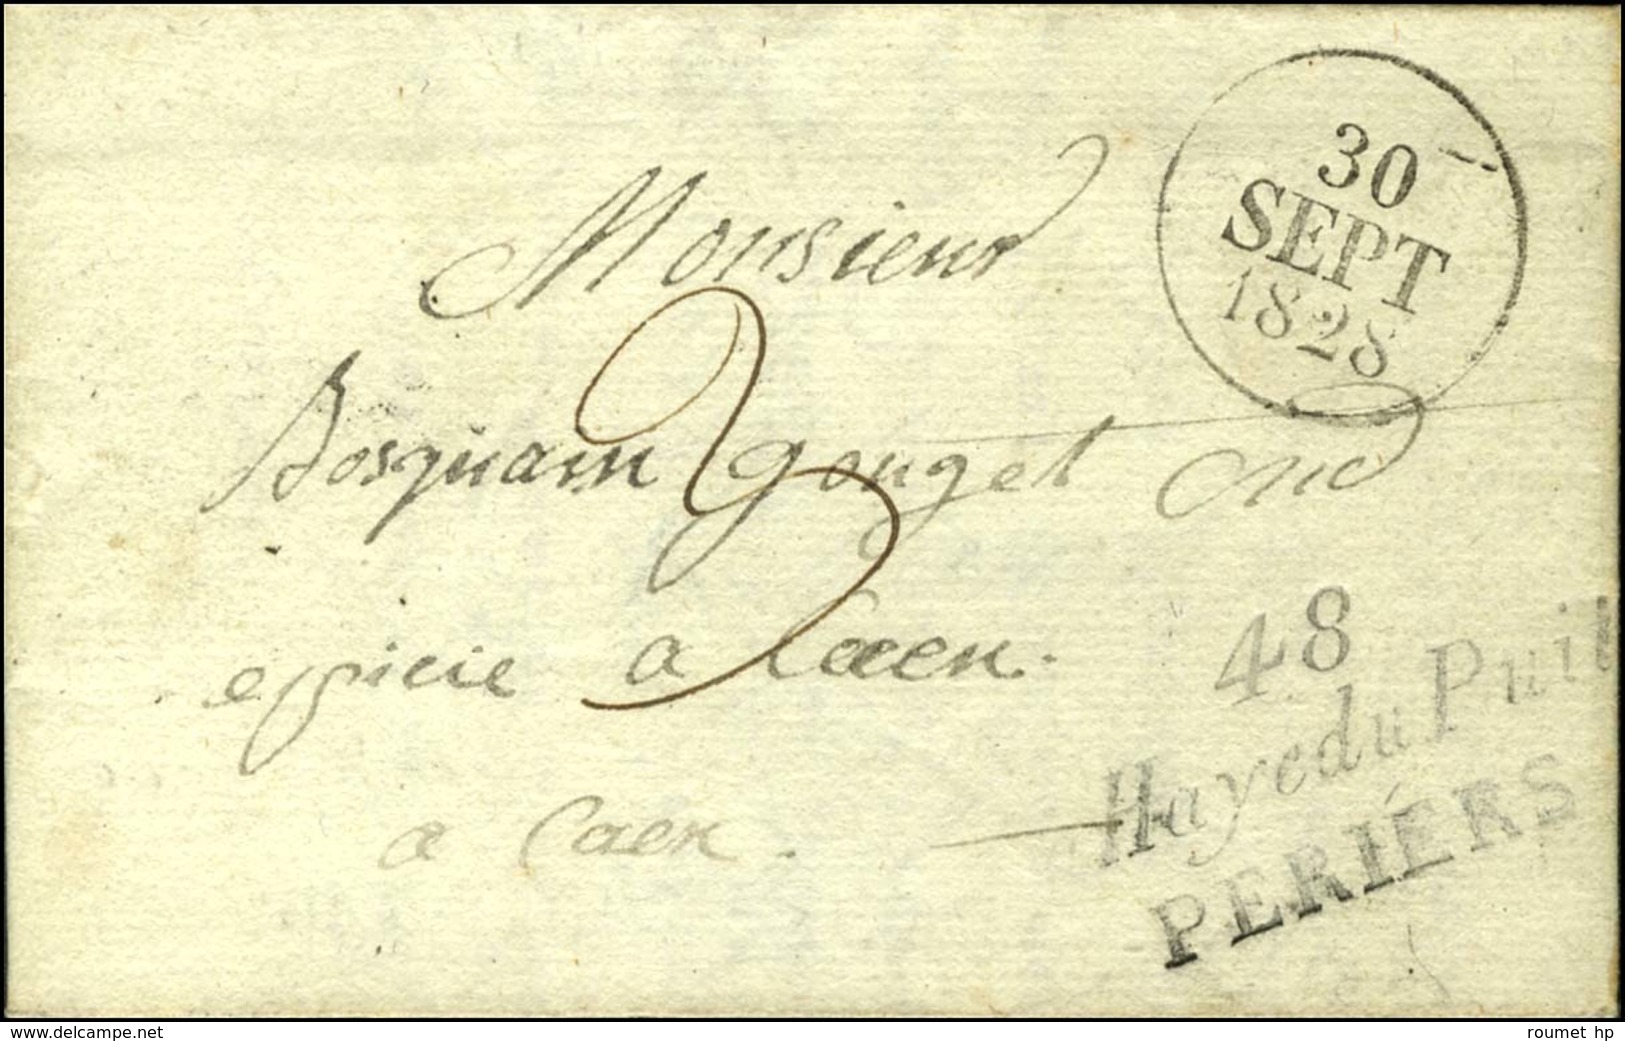 30
SEPT
1828
Monsieur
Bosquain gouget
epicie a Caen.
a Caen.
48
Haye du Puit
PERIÉRS
www.delcampe.net
roumet hp